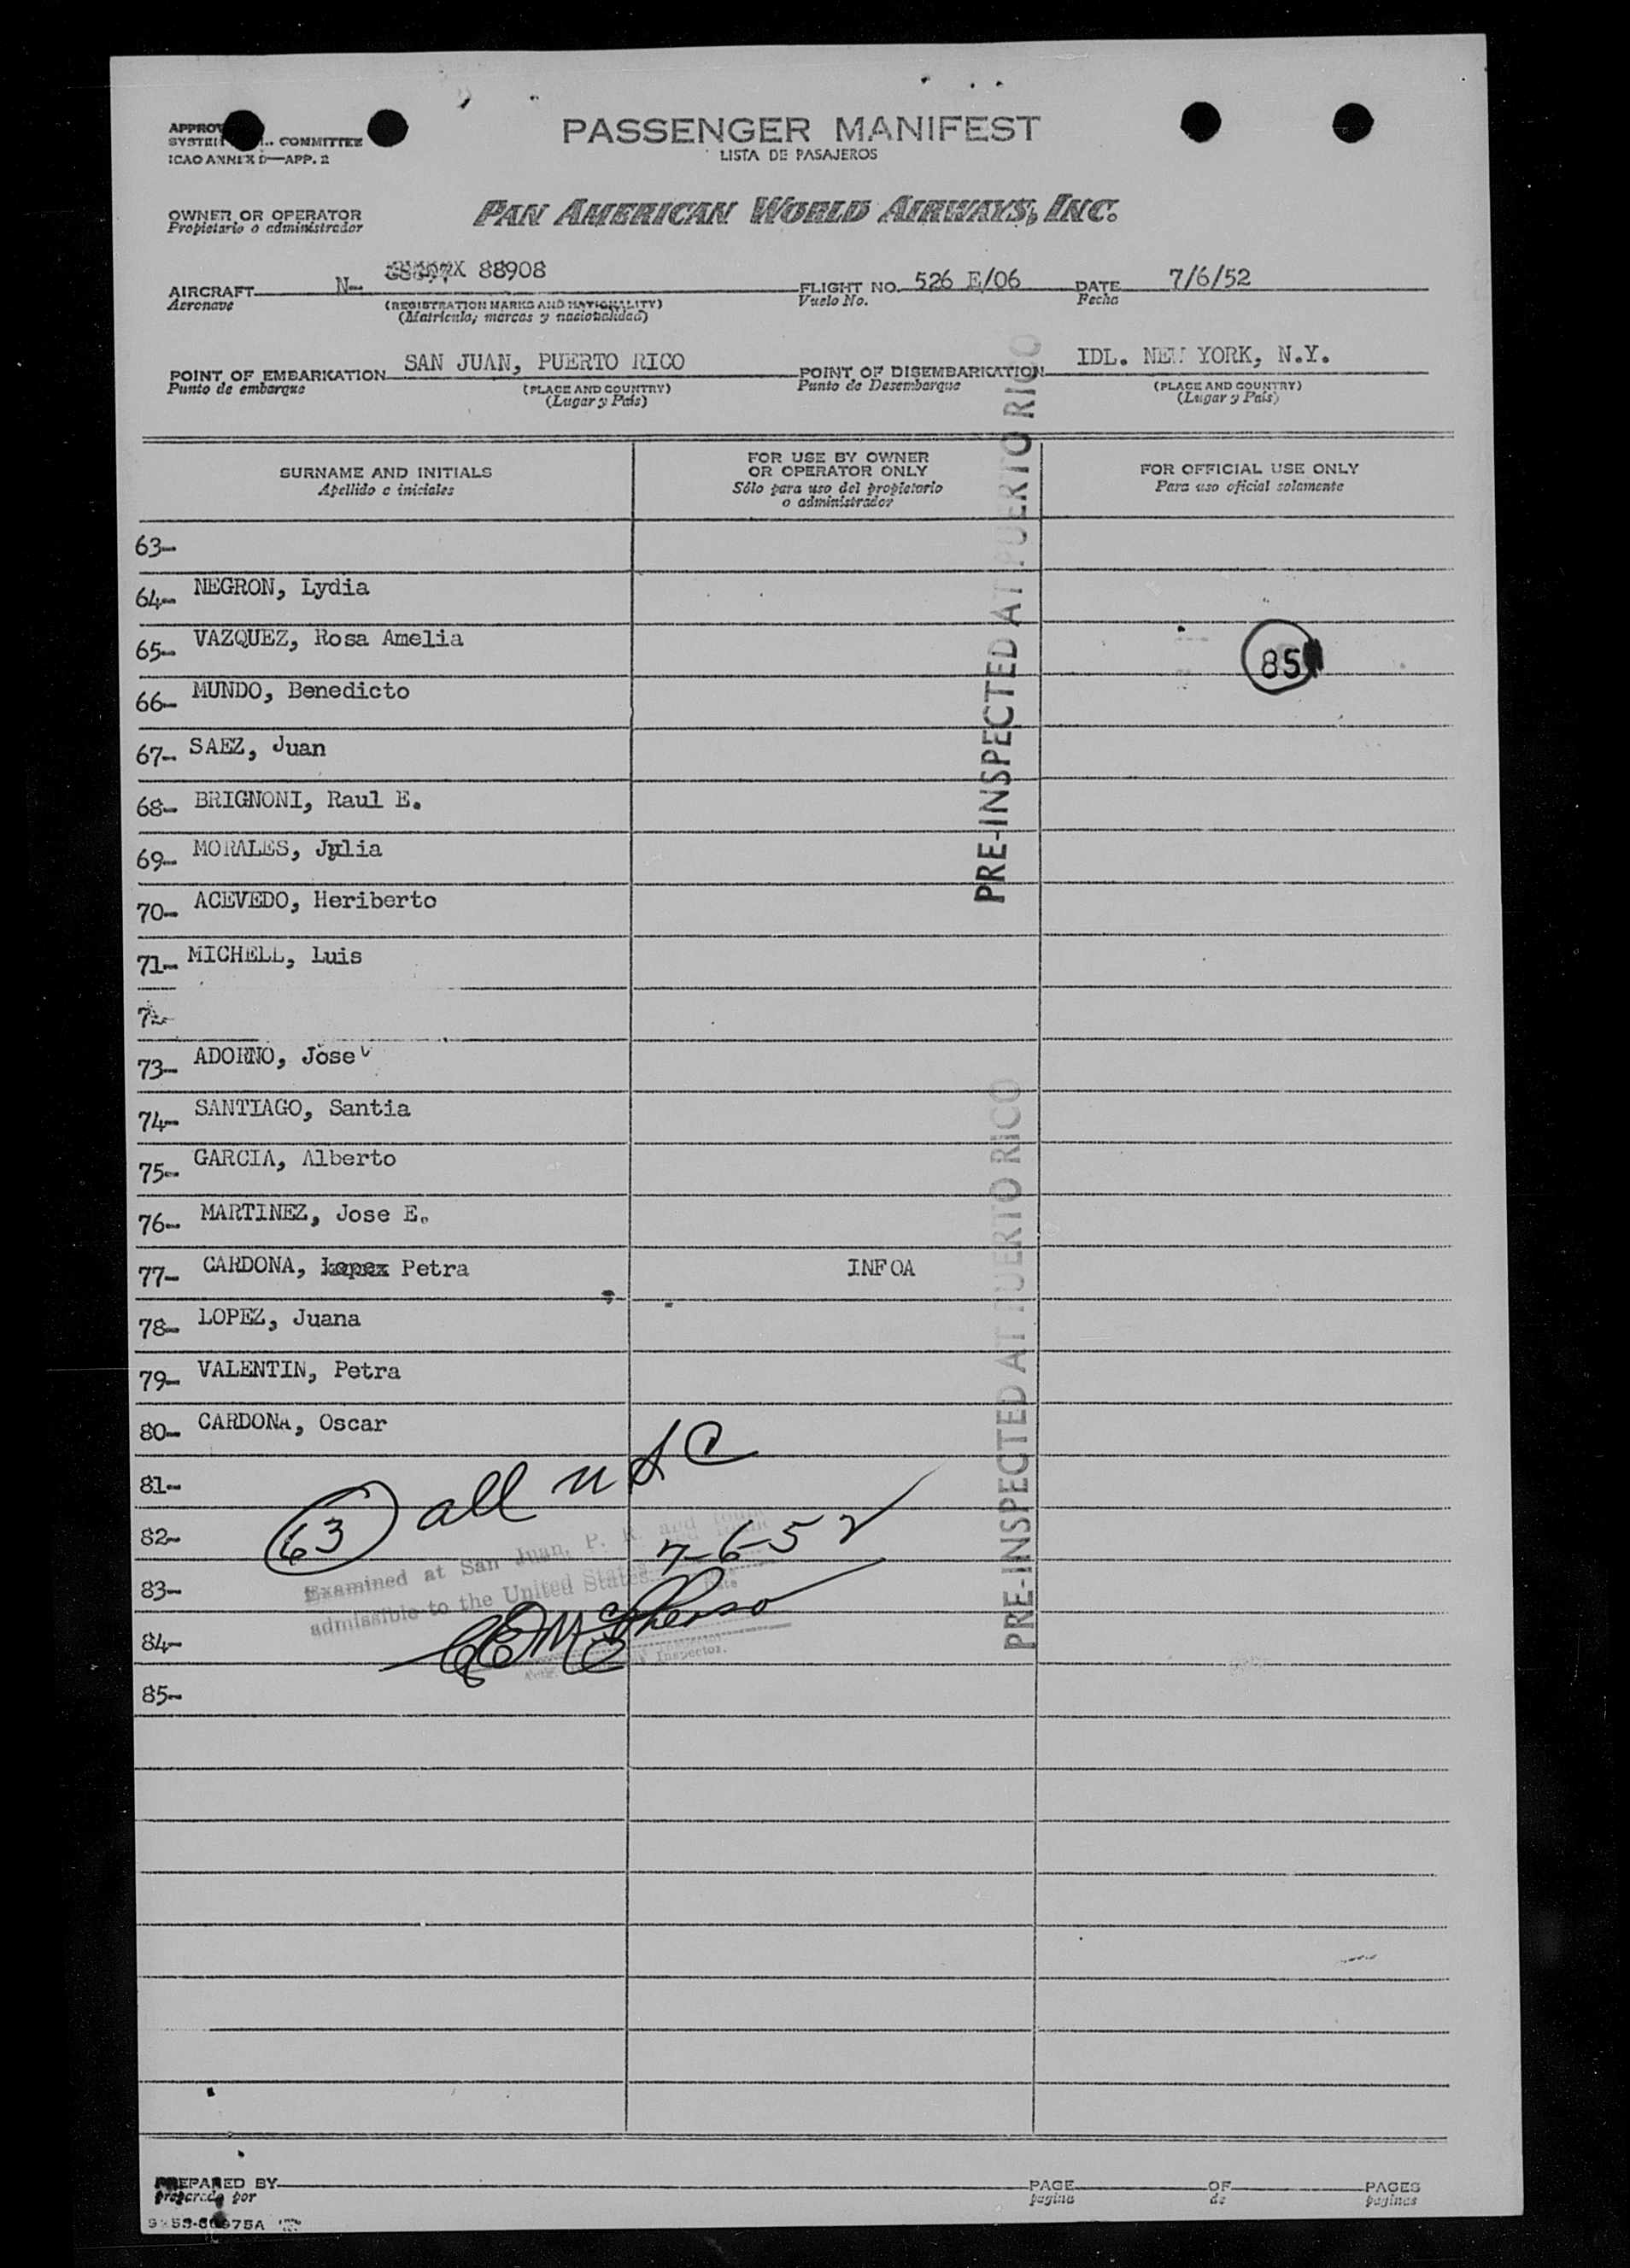 PASSENGER MANIFEST
LISTA DE PASAJEROS
COMMITTEE
ICAO ANNEX 9—APP. 2
OWNER OR OPERATOR
Propietario o administrador
PAN AMERICAN WORLD AIRWAYS, INC.
AIRCRAFT N- 88908
Aeronave
(REGISTRATION MARKS AND NATIONALITY)
(Matrícula, marcas y nacionalidad)
FLIGHT NO. 526 E/06
Vuelo No.
DATE 7/6/52
Fecha
POINT OF EMBARKATION SAN JUAN, PUERTO RICO
Punto de embarque
(PLACE AND COUNTRY)
(Lugar y País)
POINT OF DISEMBARKATION IDL. NEW YORK, N.Y.
Punto de Desembarque
(PLACE AND COUNTRY)
(Lugar y País)
SURNAME AND INITIALS
Apellido e iniciales
FOR USE BY OWNER
OR OPERATOR ONLY
Sólo para uso del propietario
o administrador
FOR OFFICIAL USE ONLY
Para uso oficial solamente
63-
64- NEGRON, Lydia
65- VAZQUEZ, Rosa Amelia
85
66- MUNDO, Benedicto
67- SAEZ, Juan
68- BRIGNONI, Raul E.
69- MORALES, Julia
70- ACEVEDO, Heriberto
71- MICHELL, Luis
72-
73- ADORNO, Jose
74- SANTIAGO, Santia
75- GARCIA, Alberto
76- MARTINEZ, Jose E.
77- CARDONA, Lopez Petra INFOA
78- LOPEZ, Juana
79- VALENTIN, Petra
80- CARDONA, Oscar
81-
82-
83-
84-
85-
PRE-INSPECTED AT PUERTO RICO
PRE-INSPECTED AT PUERTO RICO
63 all USC
7-6-52
Examined at San Juan, P. R. and found
admissible to the United States
Date
Inspector.
PREPARED BY
Preparado por
PAGE OF PAGES
pagina de paginas